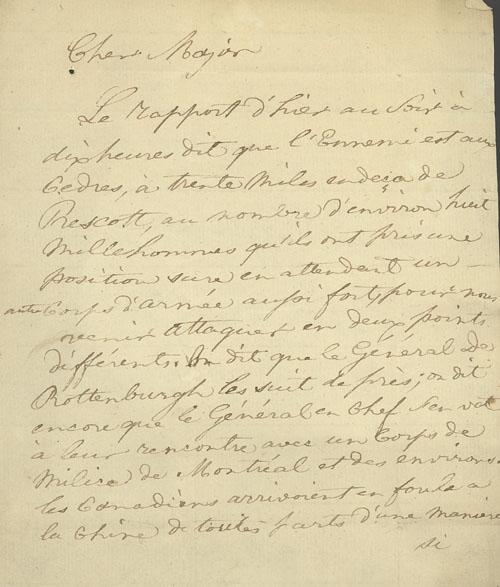 Cher Major
Le rapport d'hier au Soir à
dix heures dit que l'Ennemi est aux
Cedres, à trente Miles en deça de
Prescott, au nombre d'environ huit
Mille hommes qu'ils ont pris une
position sure en attendent un
autre Corps d'armée aussi fort, pour nous
venir Attaquer en deux points
différents. On dit que le Général De
Rottenburgh les suit de près; on dit
encore que le Général en Chef s'en vat
à leur rencontre avec un Corps de
Milice de Montréal et des environs.
les Canadiens arrivoient en foule a
la Chine de toutes parts d'une maniere
si